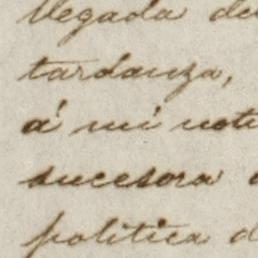 llegada de
tardanza,
á mi noti
sucesora
política d